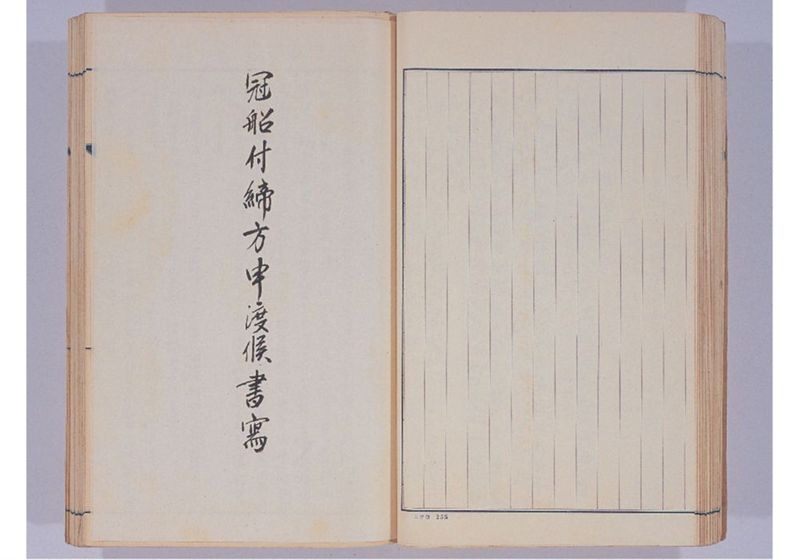 冠船付締方申渡候書寫